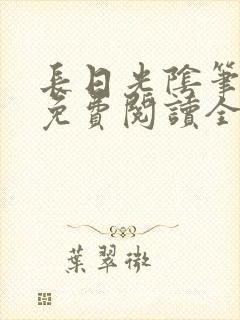 長日光陰筆
免費閱讀全
葉翠微